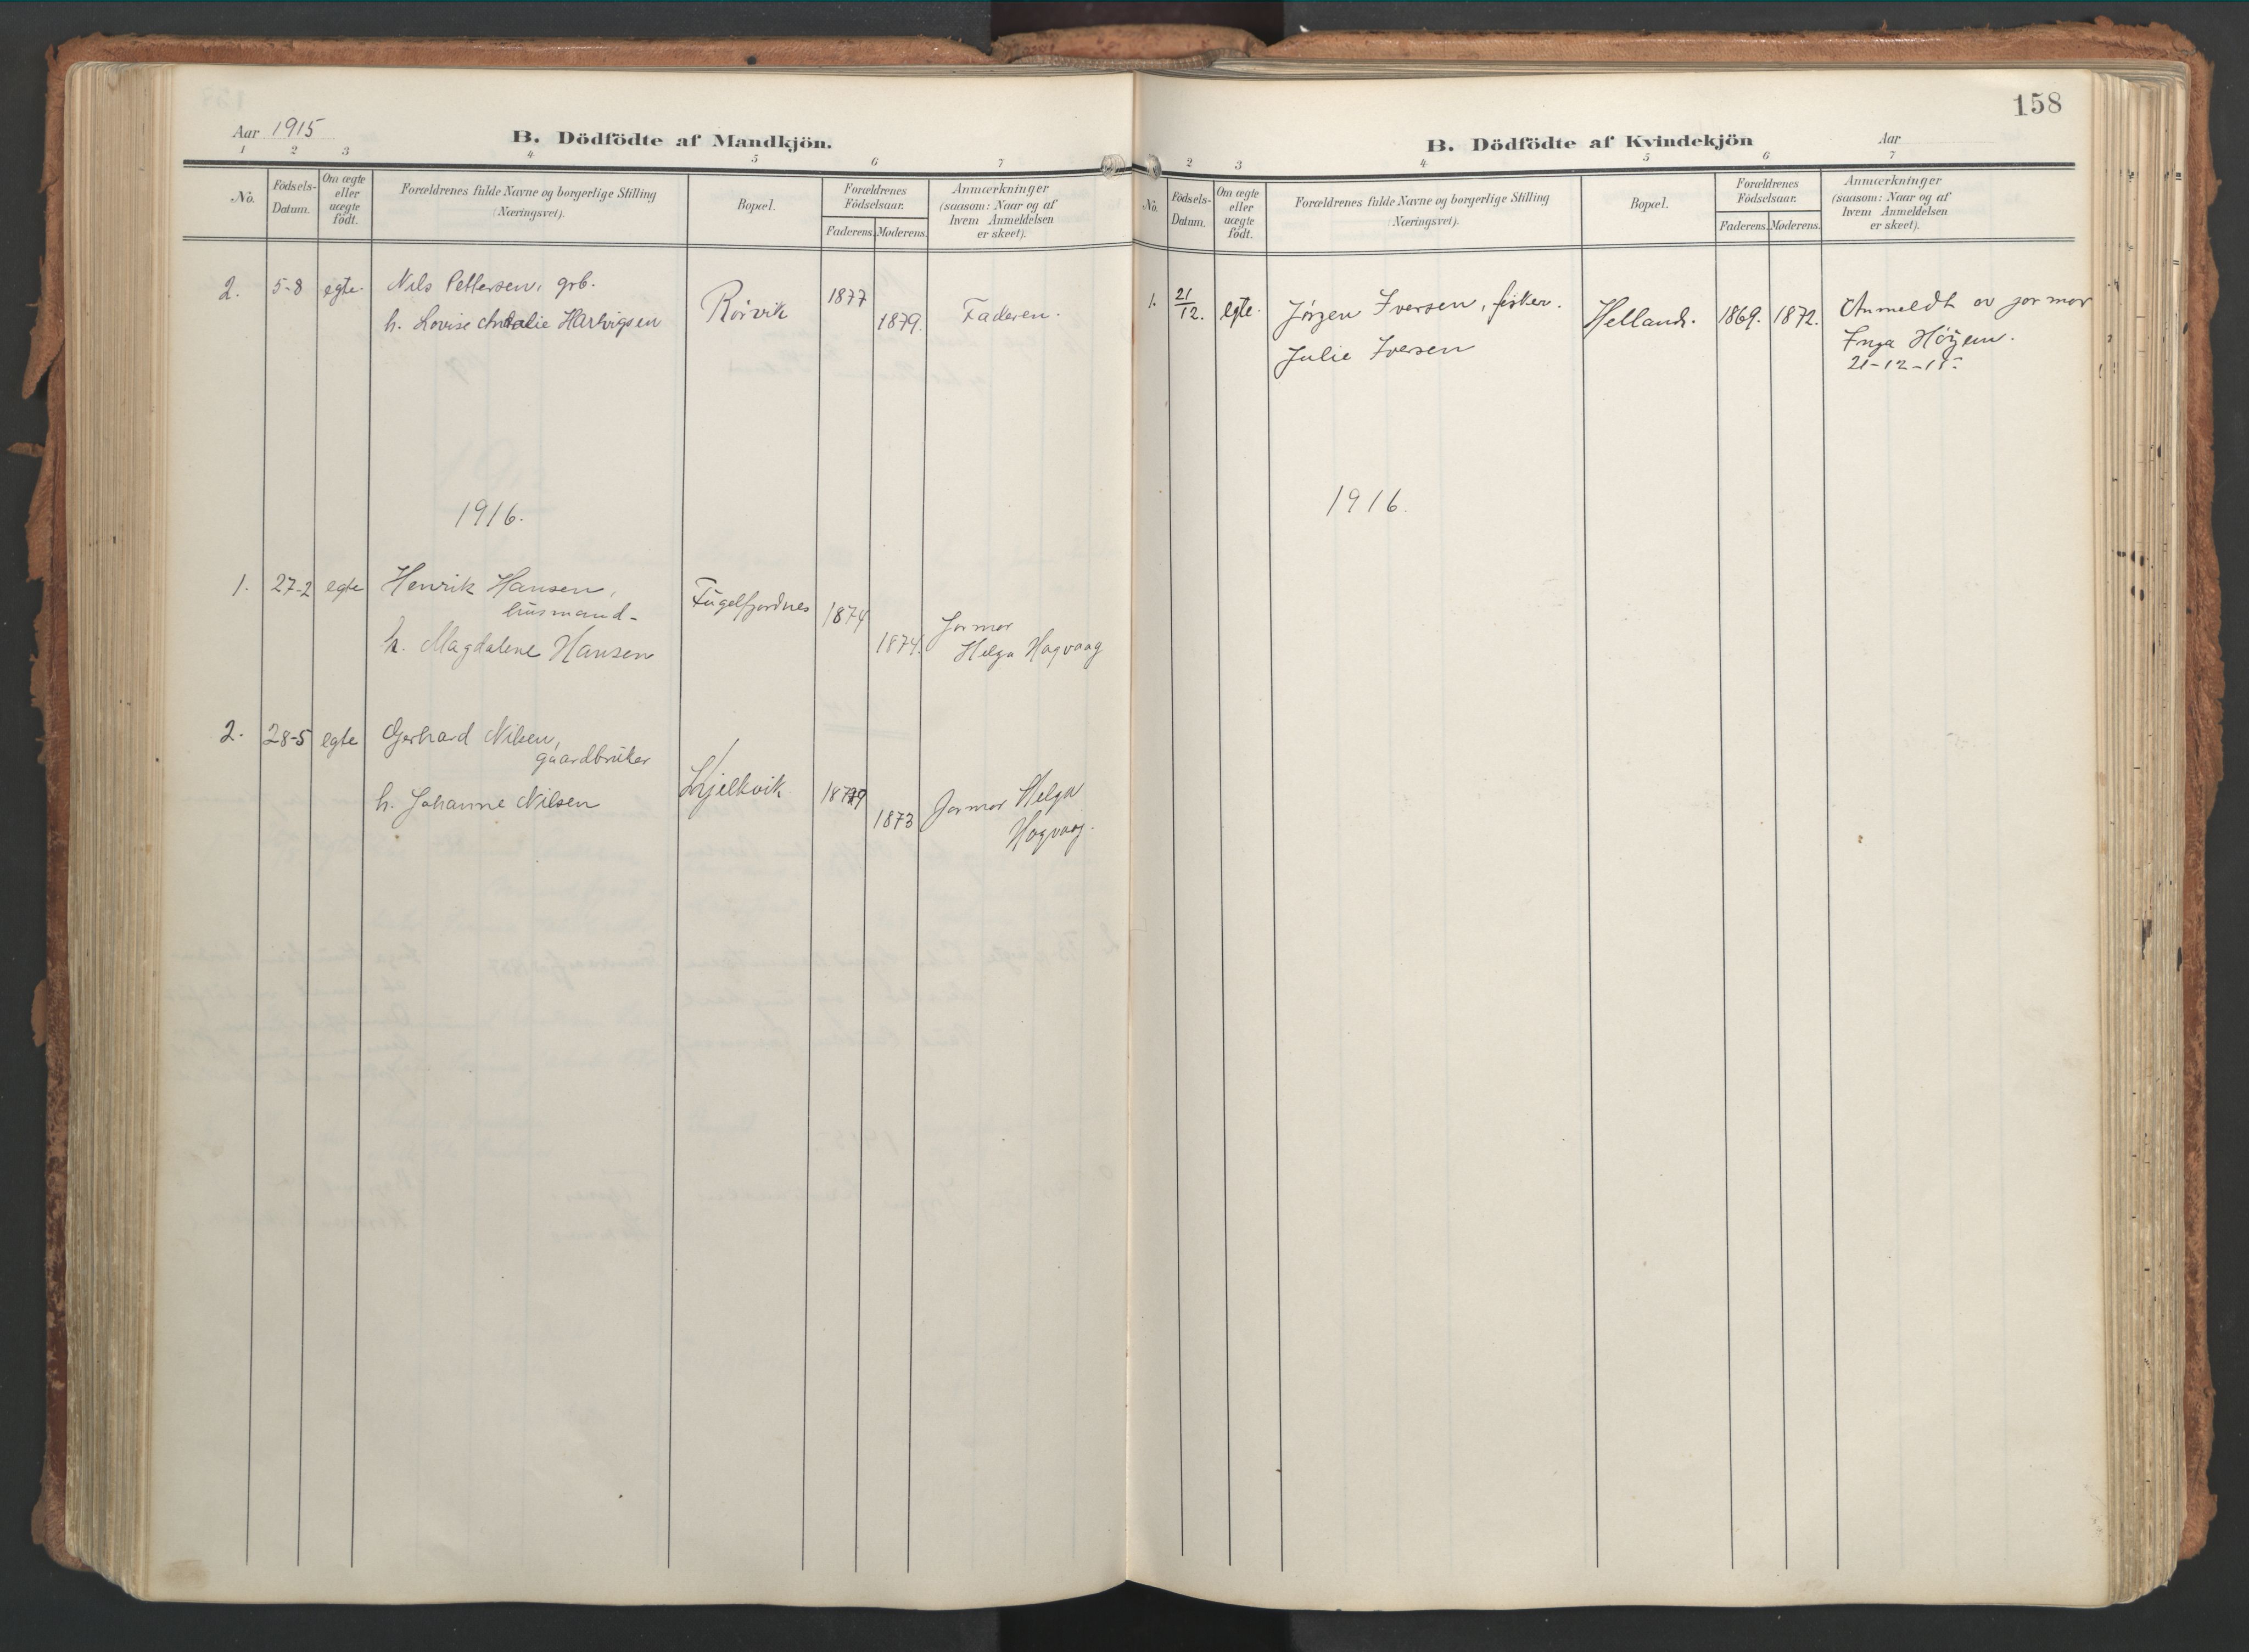 Aar 1915
B. Dödfödte af Mandkjön.
1 2 3 4 5 6 7
No.
Födsels-
Datum.
Om ægte
eller
uægte
födt.
Forældrenes fulde Navne og borgerlige Stilling
(Næringsvei).
Bopæl.
Forældrenes
Födselsaar.
Faderens. Moderens.
Anmærkninger
(saasom: Naar og af
hvem Anmeldelsen
er skeet).
2. 5-8 egte. Nils Pettersen, grb. Rörvik 1877 Faderen.
h. Lovise Hartvigsen 1879.
1916.
1. 27-2 egte Henrik Hansen, Fugelfjordnes 1874
husmand-
h. Magdalene Hansen 1874. Jormor
Helga Hagvaag
2. 28-5 egte Gerhard Nilsen,
gaardbruker
h. Johanne Nilsen Kjelkvik 1873 Jormor Helga
Hagvaag.
158
B. Dödfödte af Kvindekjön
Aar
2 3 4 5 6 7
No.
Födsels-
Datum.
Om ægte
eller
uægte
födt.
Forældrenes fulde Navne og borgerlige Stilling
(Næringsvei).
Bopæl.
Forældrenes
Födselsaar.
Faderens. Moderens.
Anmærkninger
(saasom: Naar og af
hvem Anmeldelsen
er skeet).
1. 21/12. egte. Jörgen Iversen, fisker. Helland. 1869. 1872. Anmeldt av jormor
Julie Iversen Inga Höyem.
21-12-15.
1916.